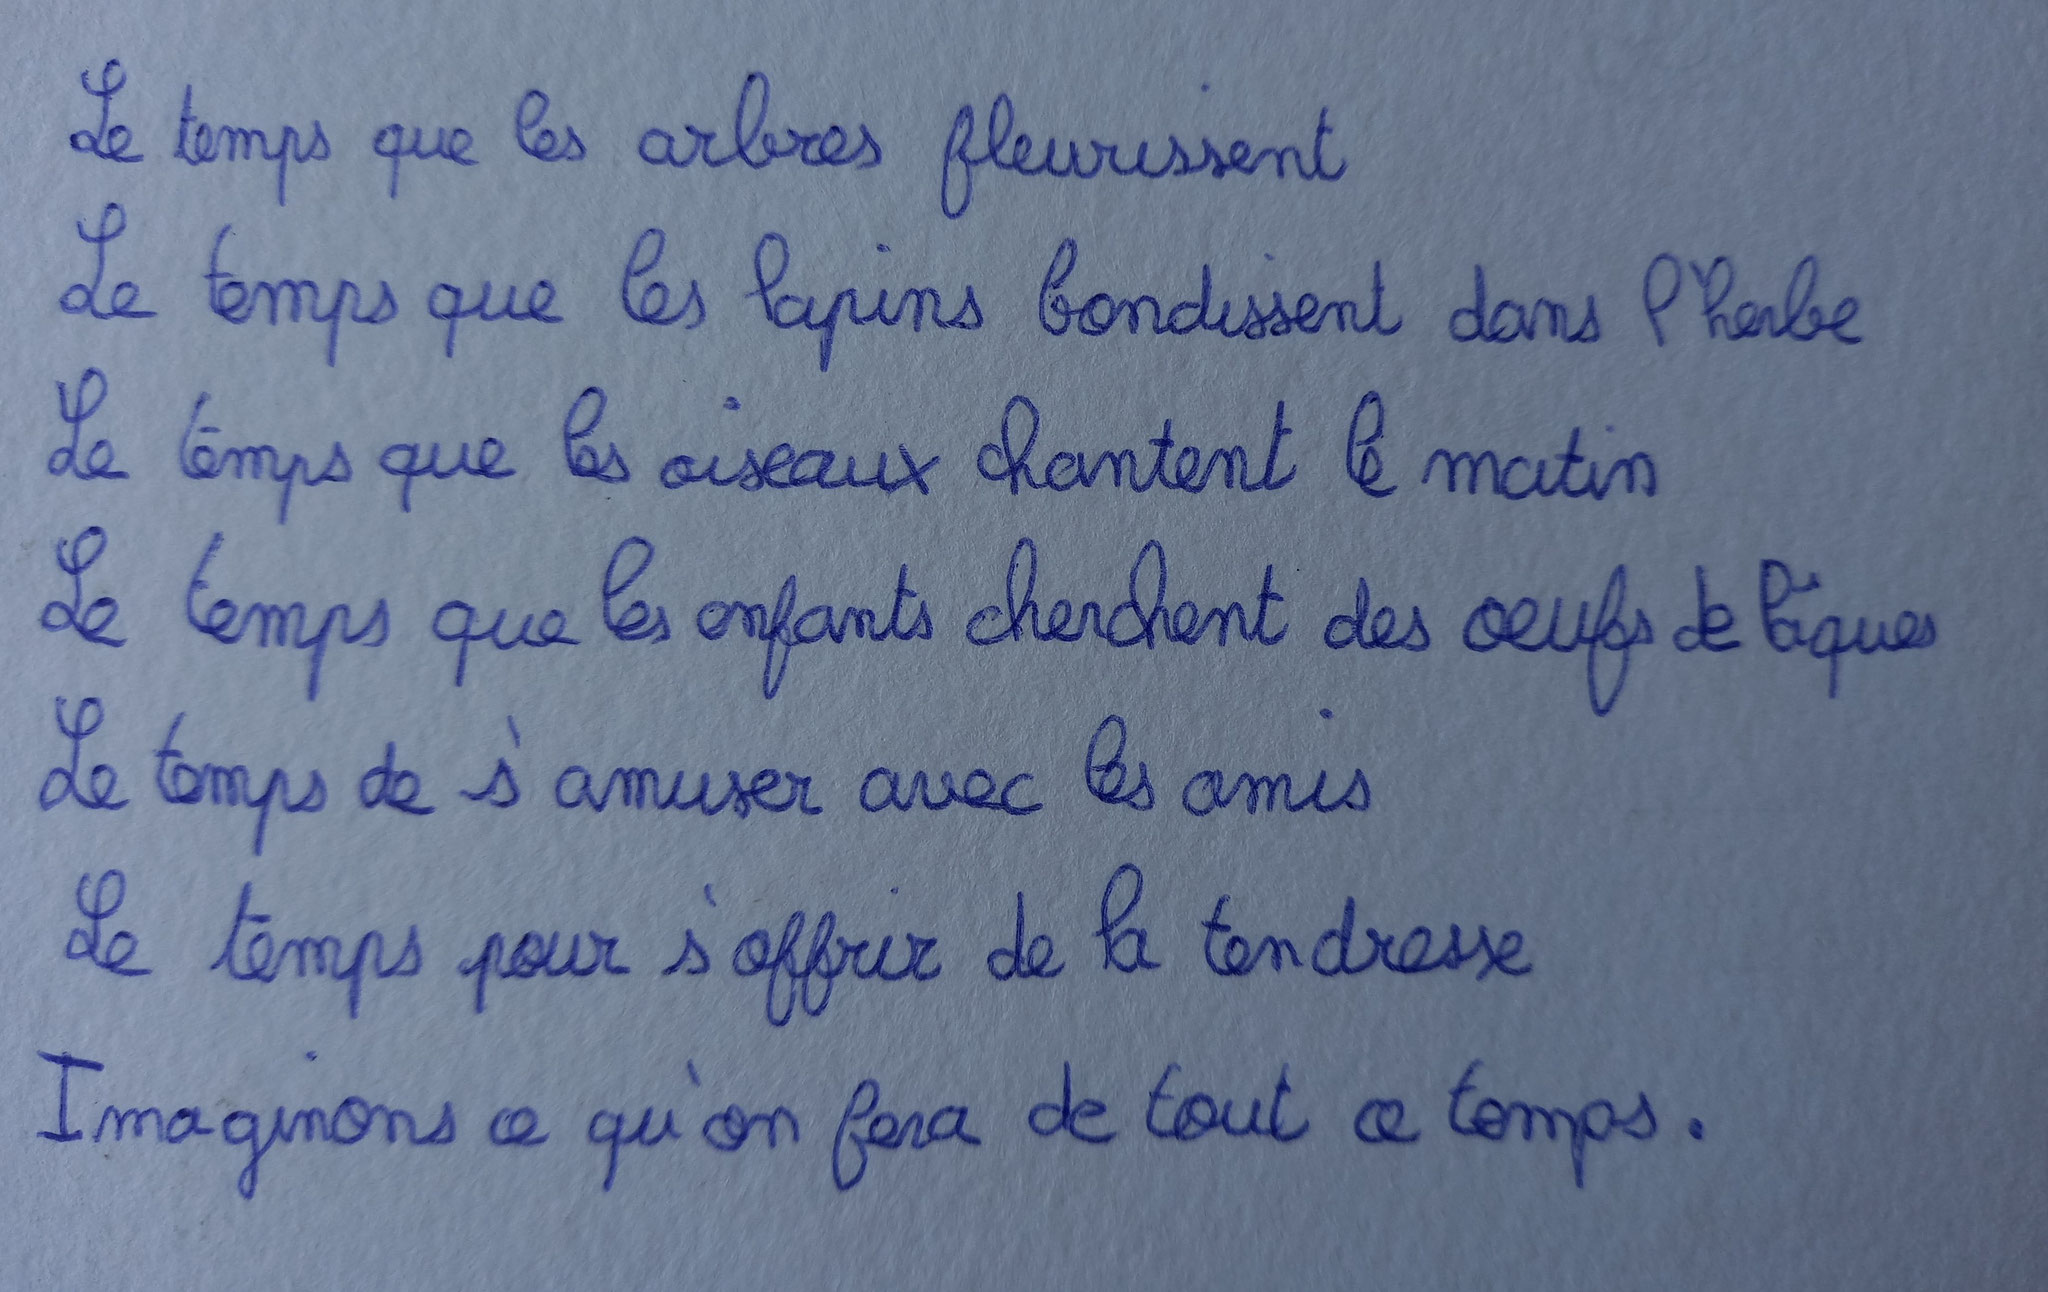 Le temps que les arbres fleurissent
Le temps que les lapins bondissent dans l'herbe
Le temps que les oiseaux chantent le matin
Le temps que les enfants cherchent des oeufs de Pâques
Le temps de s'amuser avec les amis
Le temps pour s'offrir de la tendresse
Imaginons ce qu'on fera de tout ce temps.